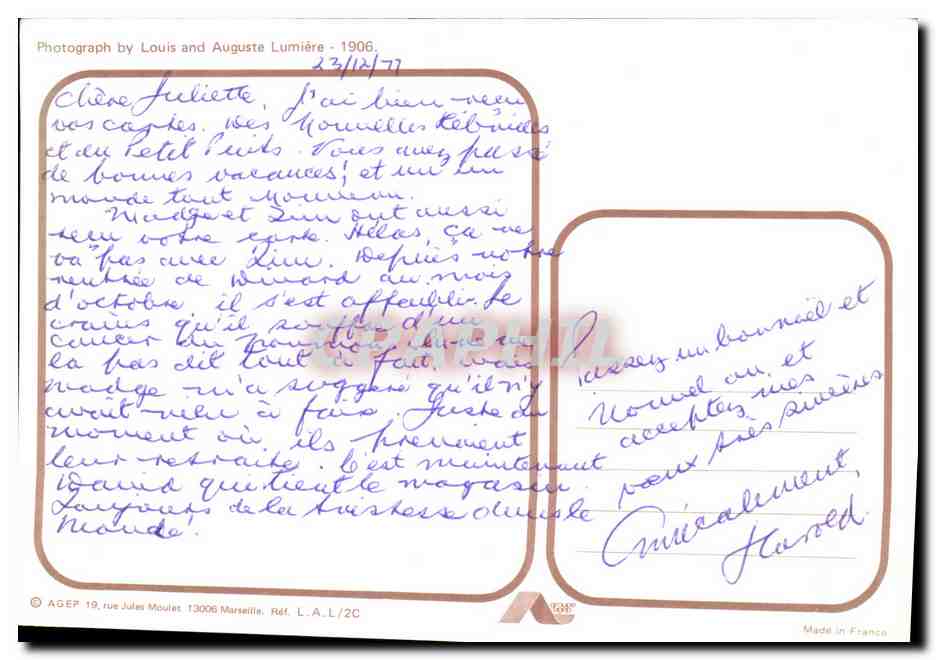 Photograph by Louis and Auguste Lumière - 1906.
23/12/77
Chère Juliette, J'ai bien reçu
vos cartes des Nouvelles Hébrides
et du Petit Puits. Vous avez passé
de bonnes vacances, et vu un
monde tout nouveau.
Madge et Jim ont aussi
reçu votre carte. Hélas, ça ne
va pas avec Jim. Depuis notre
rentrée de Dinard au mois
d'octobre il s'est affaibli. Je
crains qu'il souffre d'un
cancer du poumon.
la pas dit tout à fait, mais
Madge m'a suggéré qu'il n'y
avait rien à faire. Juste du
moment où ils prenaient
leur retraite. C'est maintenant
David qui tient le magasin.
Toujours de la tristesse dans le
monde!
Passez un bon noël et
Nouvel an, et
acceptez mes
vœux très sincères
Amicalement,
Harold
CPAPHIL
© AGEP 19, rue Jules Moulet 13006 Marseille. Réf. L.A.L/2C
Made in France